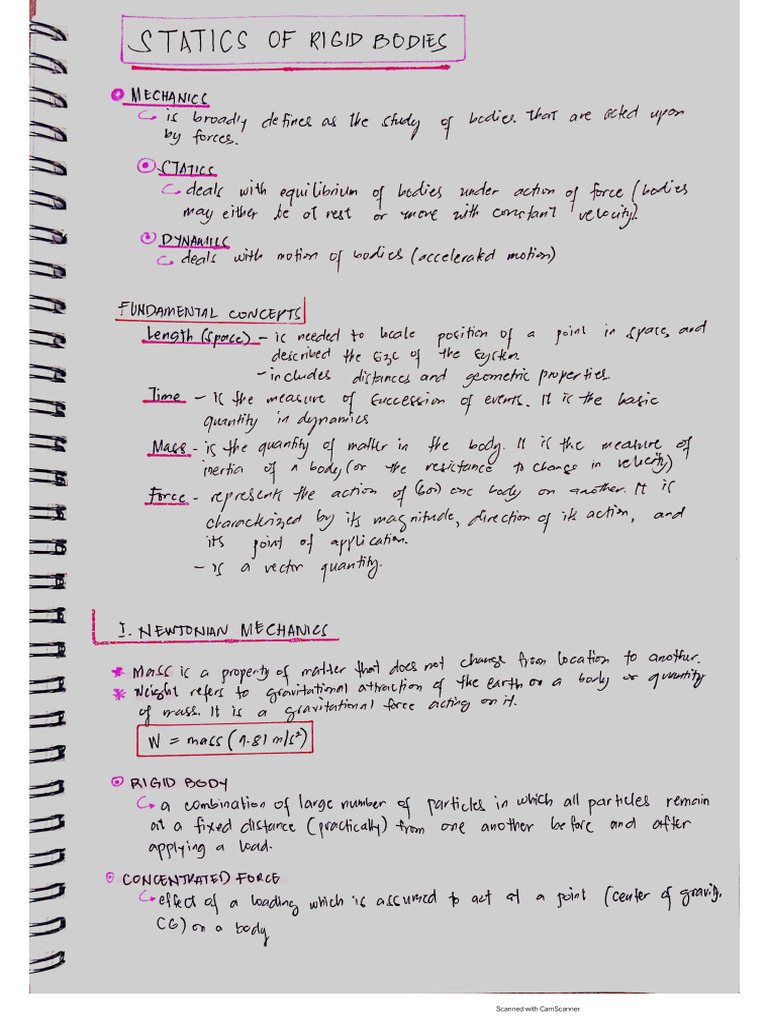 STATICS OF RIGID BODIES
MECHANICS
is broadly defines as the study of bodies. that are acted upon
by forces.
STATICS
deals with equilibrium of bodies under action of force (bodies
may either be at rest or move with constant velocity).
DYNAMICS
deals with motion of bodies (accelerated motion)
FUNDAMENTAL CONCEPTS
Length (space) - is needed to locate position of a point in space, and
described the size of the system
- includes distances and geometric properties
Time - is the measure of succession of events. It is the basic
quantity in dynamics
Mass - is the quantity of matter in the body. It is the measure of
inertia of a body (or the resistance to change in velocity)
Force - represents the action of one body on another. It is
characterized by its magnitude, direction of its action, and
its point of application.
- is a vector quantity.
I. NEWTONIAN MECHANICS
* Mass is a property of matter that does not change from location to another.
* Weight refers to gravitational attraction of the earth on a body or quantity
of mass. It is a gravitational force acting on it.
W = mass (9.81 m/s²)
RIGID BODY
a combination of large number of particles in which all particles remain
at a fixed distance (practically) from one another before and after
applying a load.
CONCENTRATED FORCE
effect of a loading which is assumed to act at a point (center of gravity,
CG) on a body
Scanned with CamScanner